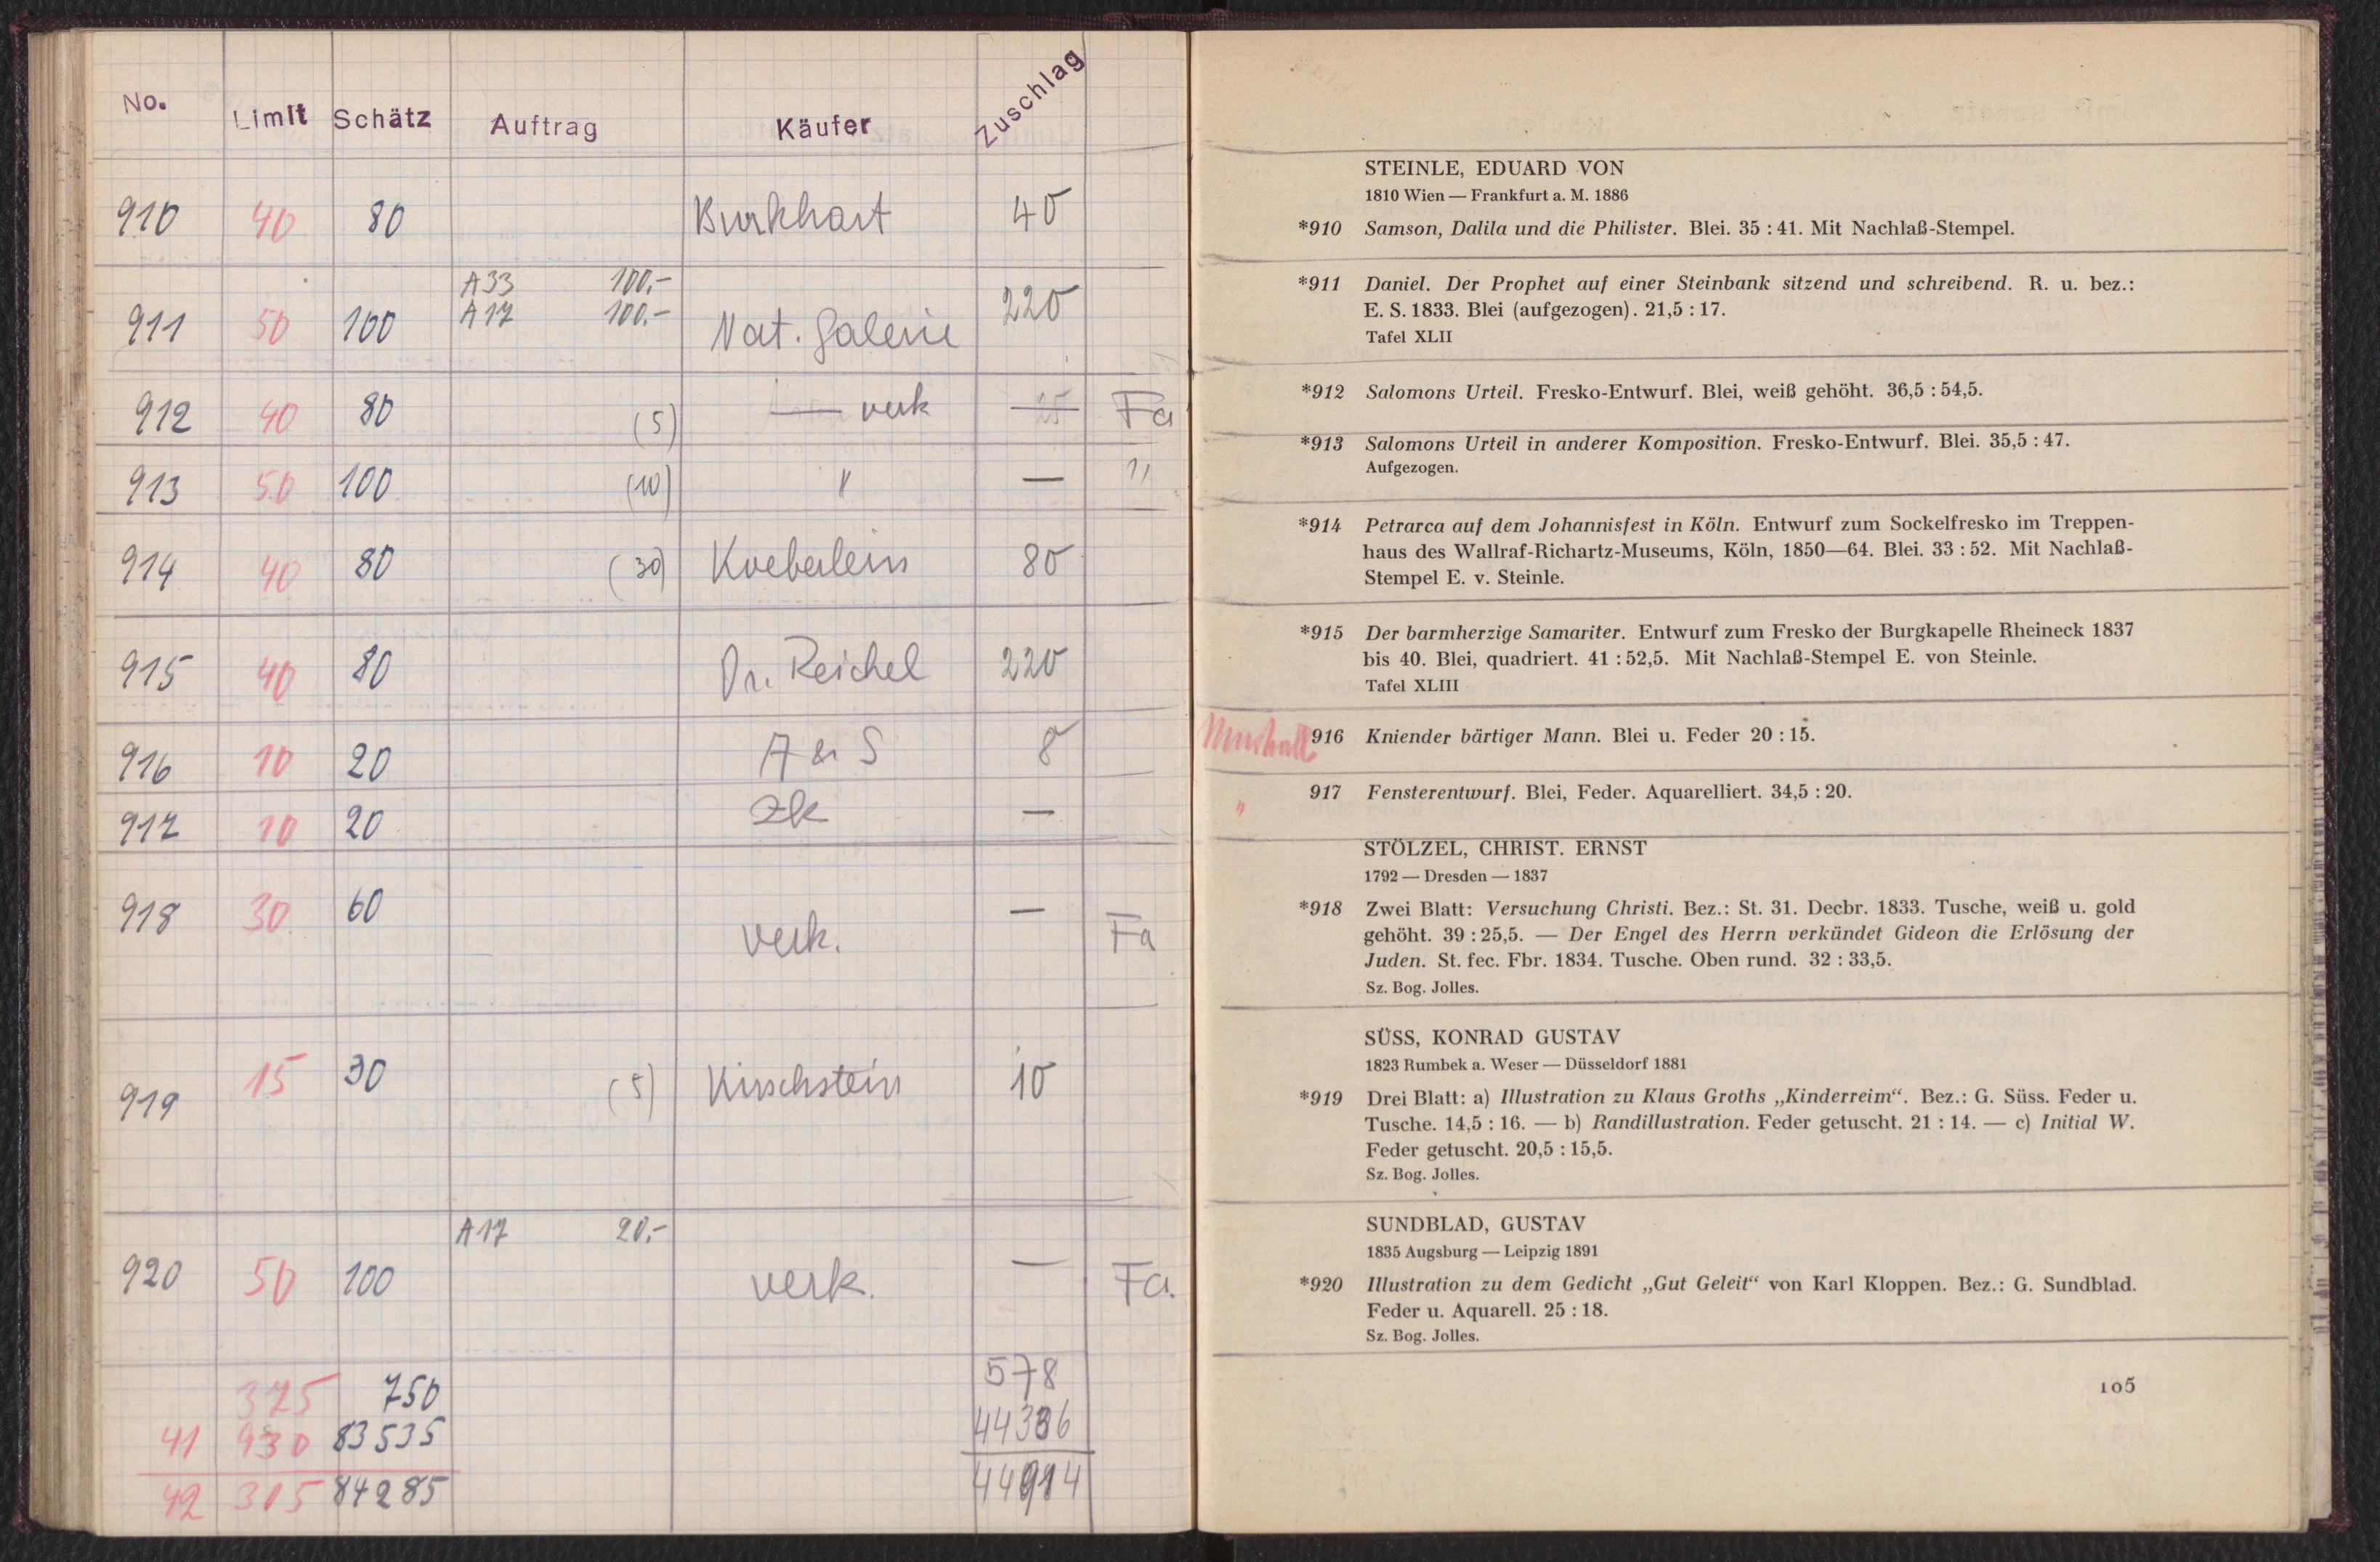 No. Limit Schätz Auftrag Käufer Zuschlag
910 40 80 Burkhart 40
A33 100,-
911 50 100 A17 100.- Nat. Galerie 220
912 40 80 (5) — verk — Fa
913 50 100 (10) " — "
914 40 80 (30) Koeberlein 80
915 40 80 Dr. Reichel 220
916 10 20 A & S 8
917 10 20 zk —
918 30 60 verk. — Fa
919 15 30 (5) Kirschstein 10
A17 20,-
920 50 100 verk. — Fa.
325 750 578
41 930 83535 44336
42 315 84285 44914
STEINLE, EDUARD VON
1810 Wien — Frankfurt a. M. 1886
*910 Samson, Dalila und die Philister. Blei. 35 : 41. Mit Nachlaß-Stempel.
*911 Daniel. Der Prophet auf einer Steinbank sitzend und schreibend. R. u. bez.:
E. S. 1833. Blei (aufgezogen). 21,5 : 17.
Tafel XLII
*912 Salomons Urteil. Fresko-Entwurf. Blei, weiß gehöht. 36,5 : 54,5.
*913 Salomons Urteil in anderer Komposition. Fresko-Entwurf. Blei. 35,5 : 47.
Aufgezogen.
*914 Petrarca auf dem Johannisfest in Köln. Entwurf zum Sockelfresko im Treppen-
haus des Wallraf-Richartz-Museums, Köln, 1850—64. Blei. 33 : 52. Mit Nachlaß-
Stempel E. v. Steinle.
*915 Der barmherzige Samariter. Entwurf zum Fresko der Burgkapelle Rheineck 1837
bis 40. Blei, quadriert. 41 : 52,5. Mit Nachlaß-Stempel E. von Steinle.
Tafel XLIII
916 Kniender bärtiger Mann. Blei u. Feder 20 : 15.
" 917 Fensterentwurf. Blei, Feder. Aquarelliert. 34,5 : 20.
STÖLZEL, CHRIST. ERNST
1792 — Dresden — 1837
*918 Zwei Blatt: Versuchung Christi. Bez.: St. 31. Decbr. 1833. Tusche, weiß u. gold
gehöht. 39 : 25,5. — Der Engel des Herrn verkündet Gideon die Erlösung der
Juden. St. fec. Fbr. 1834. Tusche. Oben rund. 32 : 33,5.
Sz. Bog. Jolles.
SÜSS, KONRAD GUSTAV
1823 Rumbek a. Weser — Düsseldorf 1881
*919 Drei Blatt: a) Illustration zu Klaus Groths „Kinderreim“. Bez.: G. Süss. Feder u.
Tusche. 14,5 : 16. — b) Randillustration. Feder getuscht. 21 : 14. — c) Initial W.
Feder getuscht. 20,5 : 15,5.
Sz. Bog. Jolles.
SUNDBLAD, GUSTAV
1835 Augsburg — Leipzig 1891
*920 Illustration zu dem Gedicht „Gut Geleit“ von Karl Kloppen. Bez.: G. Sundblad.
Feder u. Aquarell. 25 : 18.
Sz. Bog. Jolles.
105